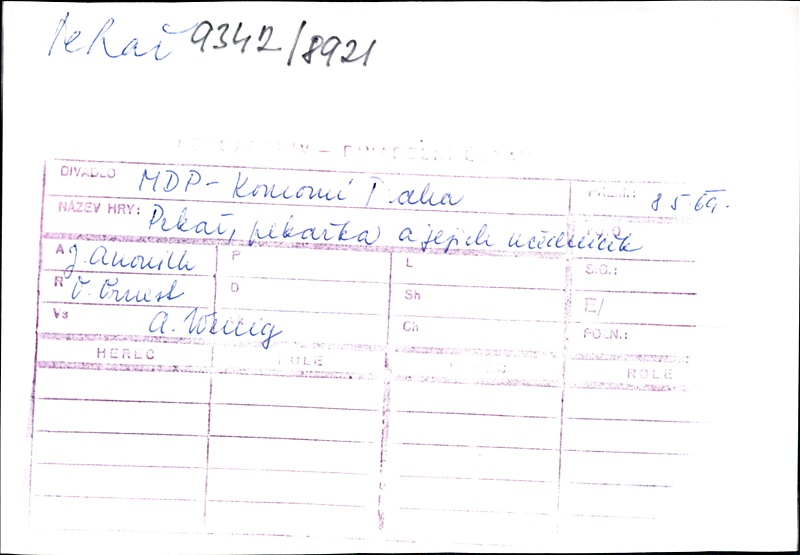 Pekař 9342/8921
DIVADLO MDP - Komorní Praha 8 5 69.
NÁZEV HRY: Pekař, pekařka a jejich učedníček
A J. Anouilh P L S.O.:
R O. Ornest D Sh E/
Vs A. Wenig Ch POZN.:
HEREC ROLE HEREC ROLE